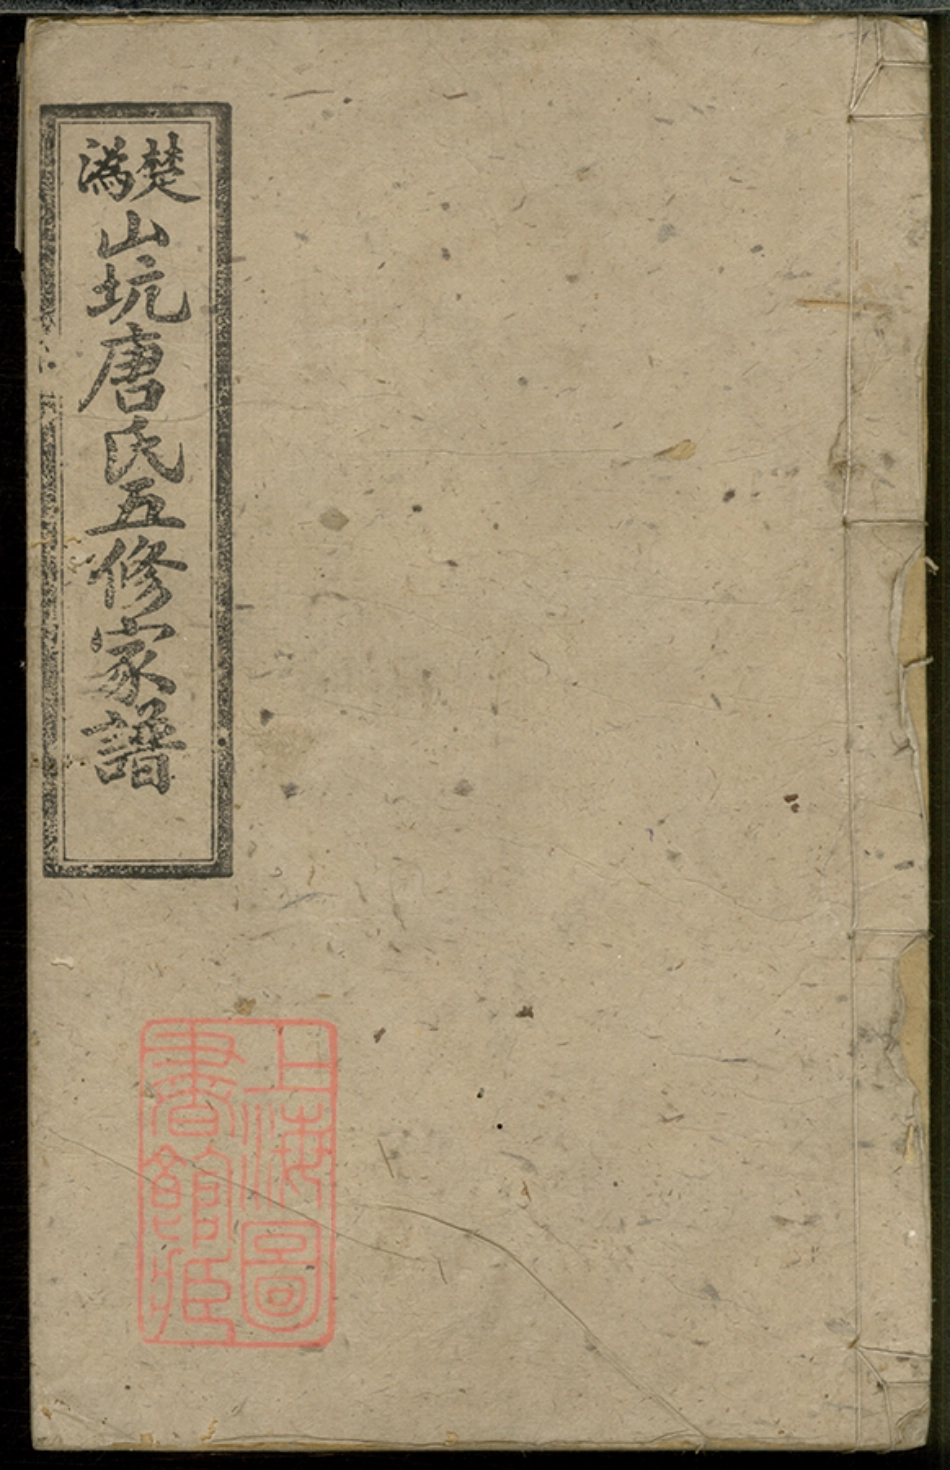 楚溈山坑唐氏五修家譜
上海圖
書館藏